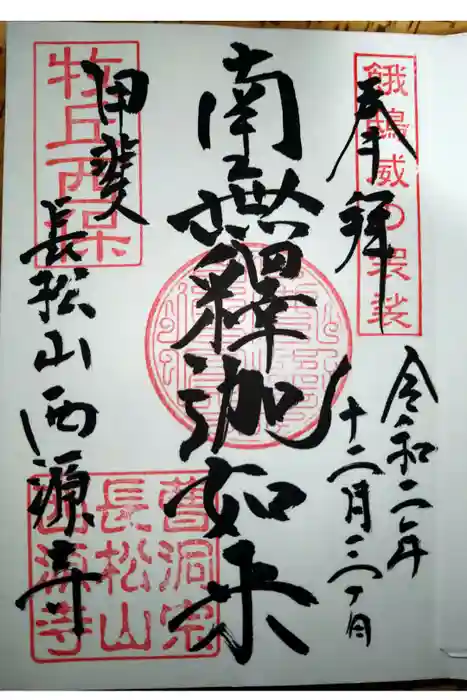 餓鴟威の袈裟
奉拝
令和二年
十二月
南無釋迦如来
甲斐
長松山西源寺
牧丘西保
曹洞宗
長松山
西源寺